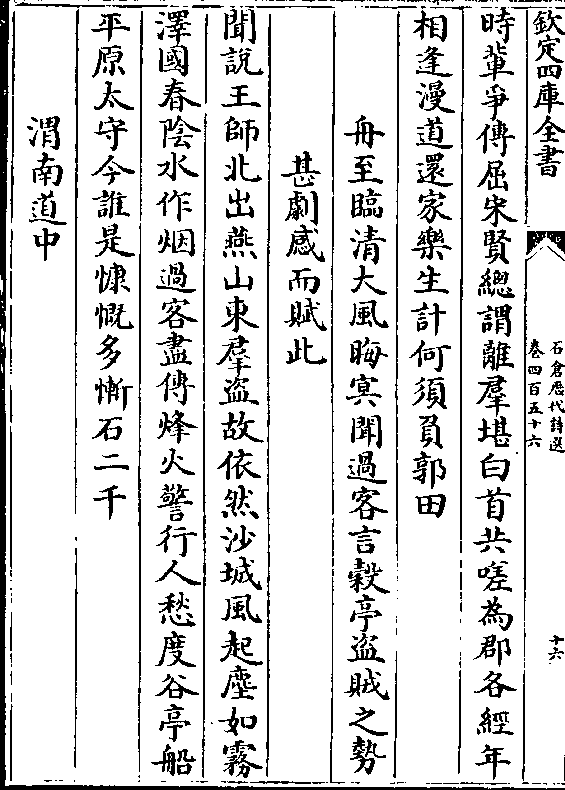 欽定四庫全書
石倉歷代詩選
卷四百五十六
十六
時輩爭傳屈宋賢總謂離羣堪白首共嗟為郡各經年
相逢漫道還家樂生計何須負郭田
舟至臨清大風晦冥聞過客言穀亭盜賊之勢
甚劇感而賦此
聞說王師北出燕山東羣盜故依然沙城風起塵如霧
澤國春陰水作烟過客盡傳烽火警行人愁度谷亭船
平原太守今誰是慷慨多慚石二千
渭南道中